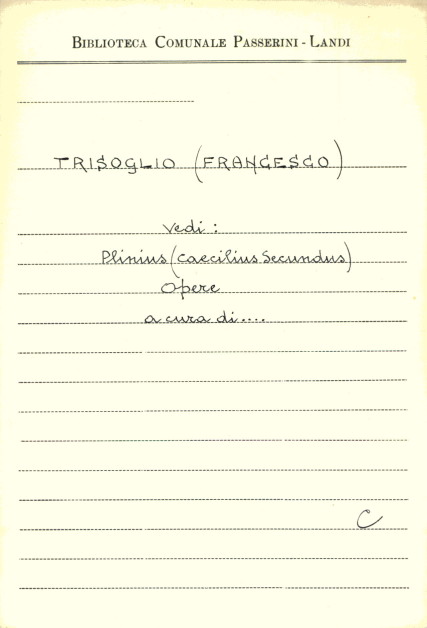 BIBLIOTECA COMUNALE PASSERINI - LANDI
TRISOGLIO (FRANCESCO)
Vedi :
Plinius (Caecilius Secundus)
Opere
a cura di....
C